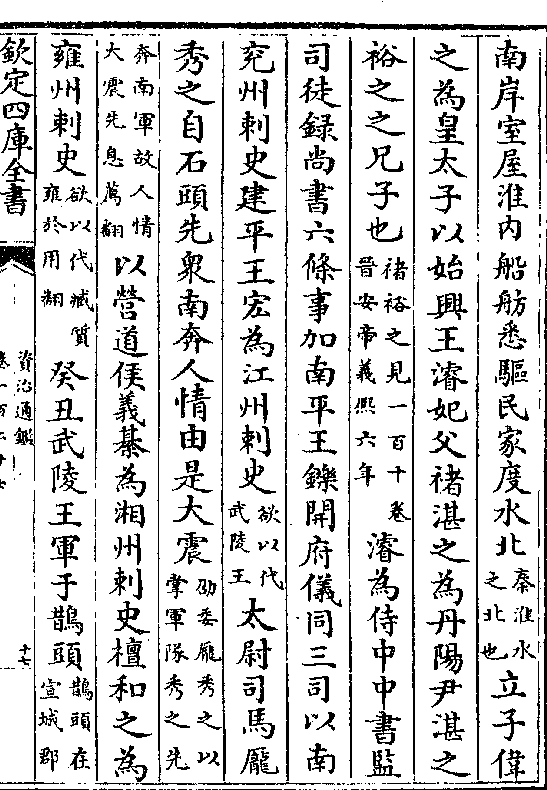 南岸室屋淮内船舫悉驅民家度水北秦淮水之北也立子偉
之為皇太子以始興王濬妃父禇湛之為丹陽尹湛之
裕之之兄子也禇裕之見一百十卷晉安帝義熙六年濬為侍中中書監
司徒録尚書六條事加南平王鑠開府儀同三司以南
兖州刺史建平王宏為江州刺史欲以代武陵王太尉司馬龎
秀之自石頭先衆南奔人情由是大震劭委龎秀之以掌軍隊秀之先
奔南軍故人情大震先息薦翻以營道侯義綦為湘州刺史檀和之為
雍州刺史欲以代臧質雍於用翻癸丑武陵王軍于鵲頭鵲頭在宣城郡
欽定四庫全書
資治通鑑
卷一百二十七
十七